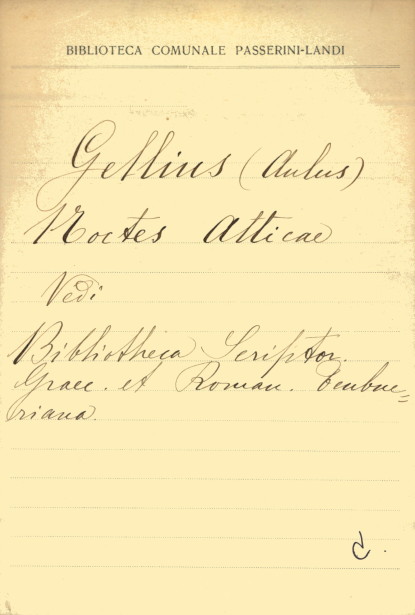 BIBLIOTECA COMUNALE PASSERINI-LANDI
Gellius (Aulus)
Noctes Atticae
Vedi
Bibliotheca Scriptor.
Graec. et Roman. Teubne=
riana.
C.